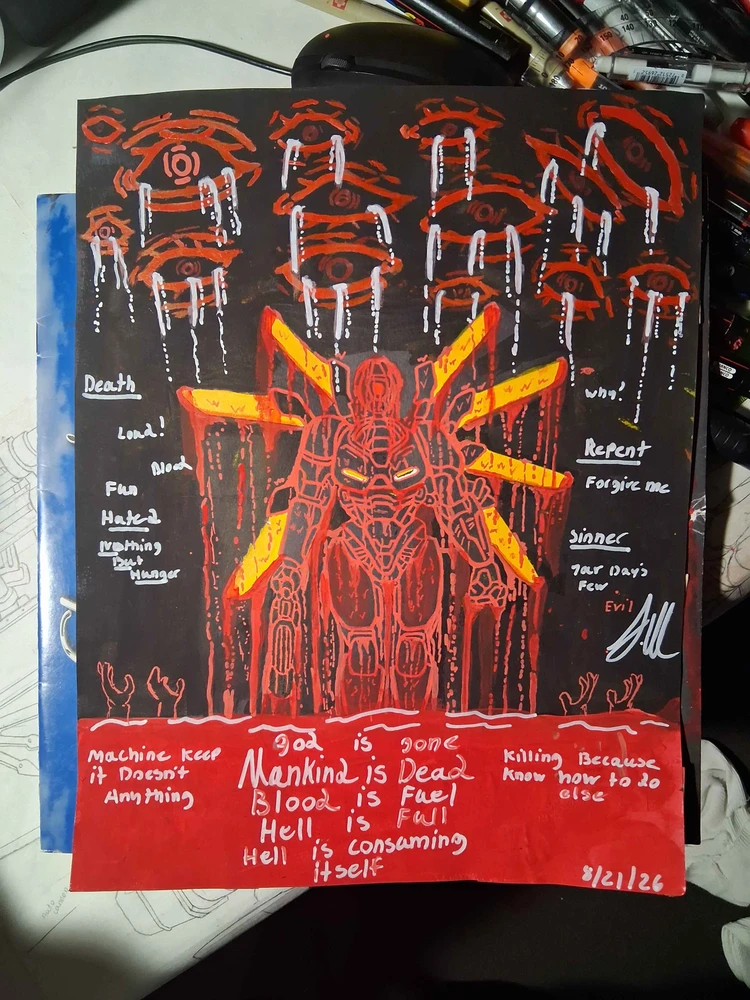 Death
Load!
Blood
Fun
Hated
Nothing
But
Hunger
why!
Repent
Forgive me
Sinner
Days
Few
Evil
god is gone
Mankind is Dead
Blood is Fuel
Hell is Full
Hell is consaming
itself
Machine Keep
it Doesn't
Anything
Killing Because
Know how to do
else
8/21/26